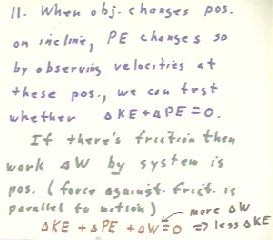 11. When obj. changes pos.
on incline, PE changes so
by observing velocities at
these pos., we can test
whether ΔKE+ΔPE=0.
If there's friction then
work ΔW by system is
pos. (force against frict. is
parallel to motion)
more ΔW
ΔKE + ΔPE + ΔW=0 => less ΔKE